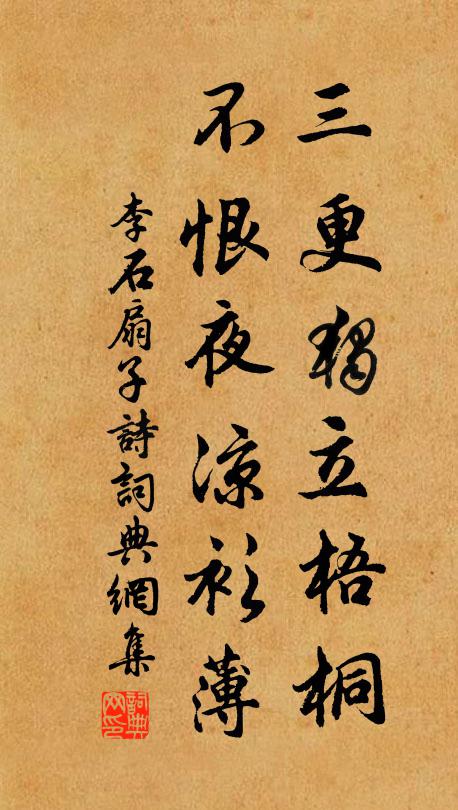 三更獨立梧桐
不恨夜涼衫薄
李石扇子詩詞典網集
詞典網印